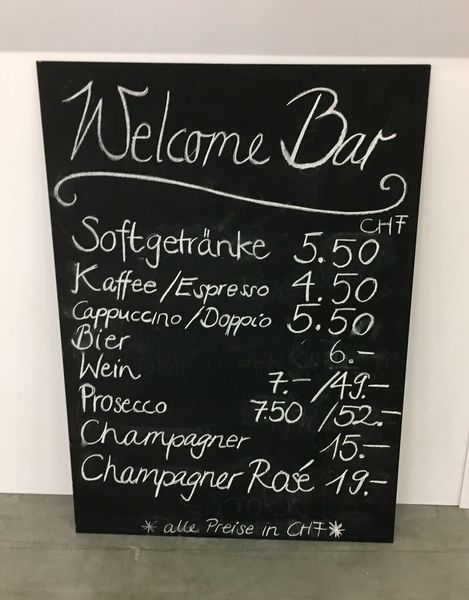 Welcome Bar
CHF
Softgetränke 5.50
Kaffee/Espresso 4.50
Cappuccino/Doppio 5.50
Bier 6.–
Wein 7.–/49.–
Prosecco 7.50/52.–
Champagner 15.–
Champagner Rosé 19.–
* alle Preise in CHF *